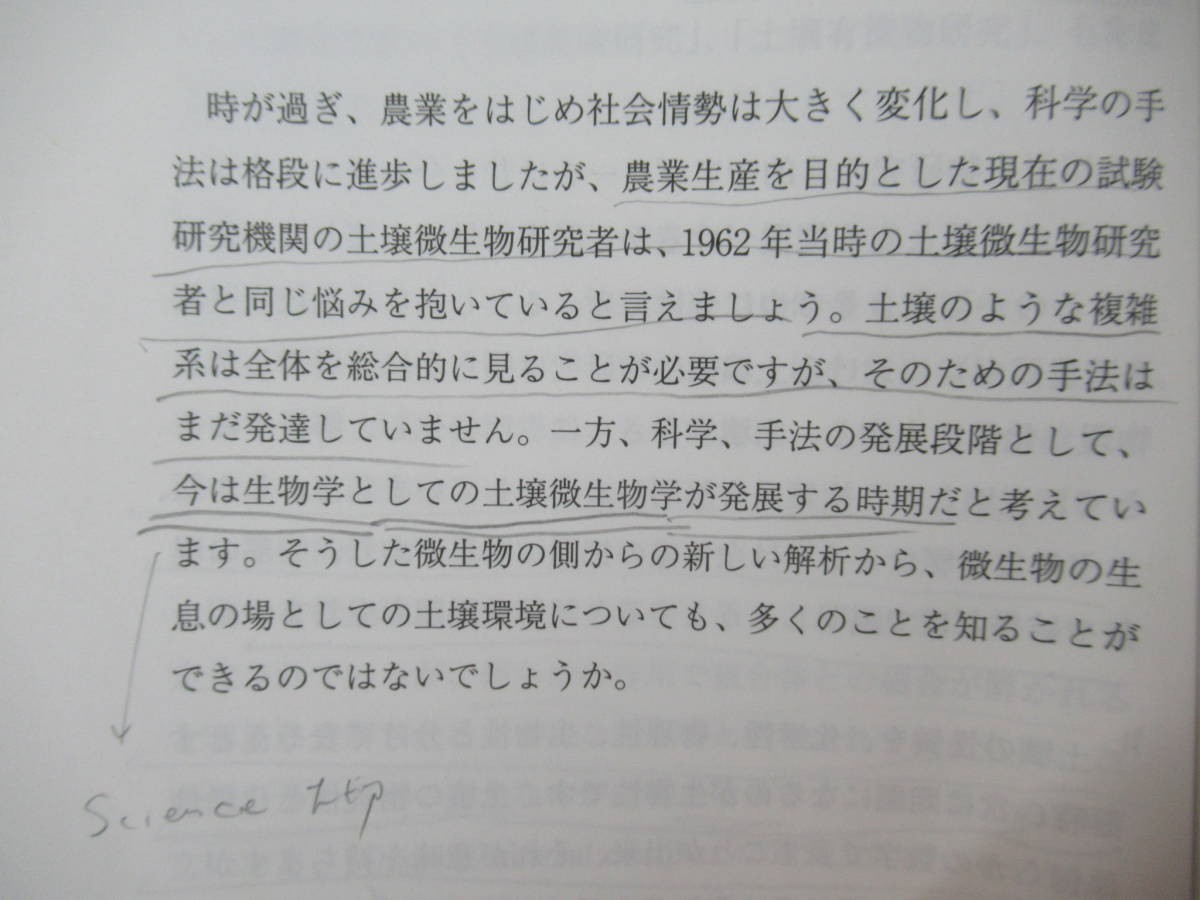 時が過ぎ、農業をはじめ社会情勢は大きく変化し、科学の手
法は格段に進歩しましたが、農業生産を目的とした現在の試験
研究機関の土壌微生物研究者は、1962年当時の土壌微生物研究
者と同じ悩みを抱いていると言えましょう。土壌のような複雑
系は全体を総合的に見ることが必要ですが、そのための手法は
まだ発達していません。一方、科学、手法の発展段階として、
今は生物学としての土壌微生物学が発展する時期だと考えてい
ます。そうした微生物の側からの新しい解析から、微生物の生
息の場としての土壌環境についても、多くのことを知ることが
できるのではないでしょうか。
Science